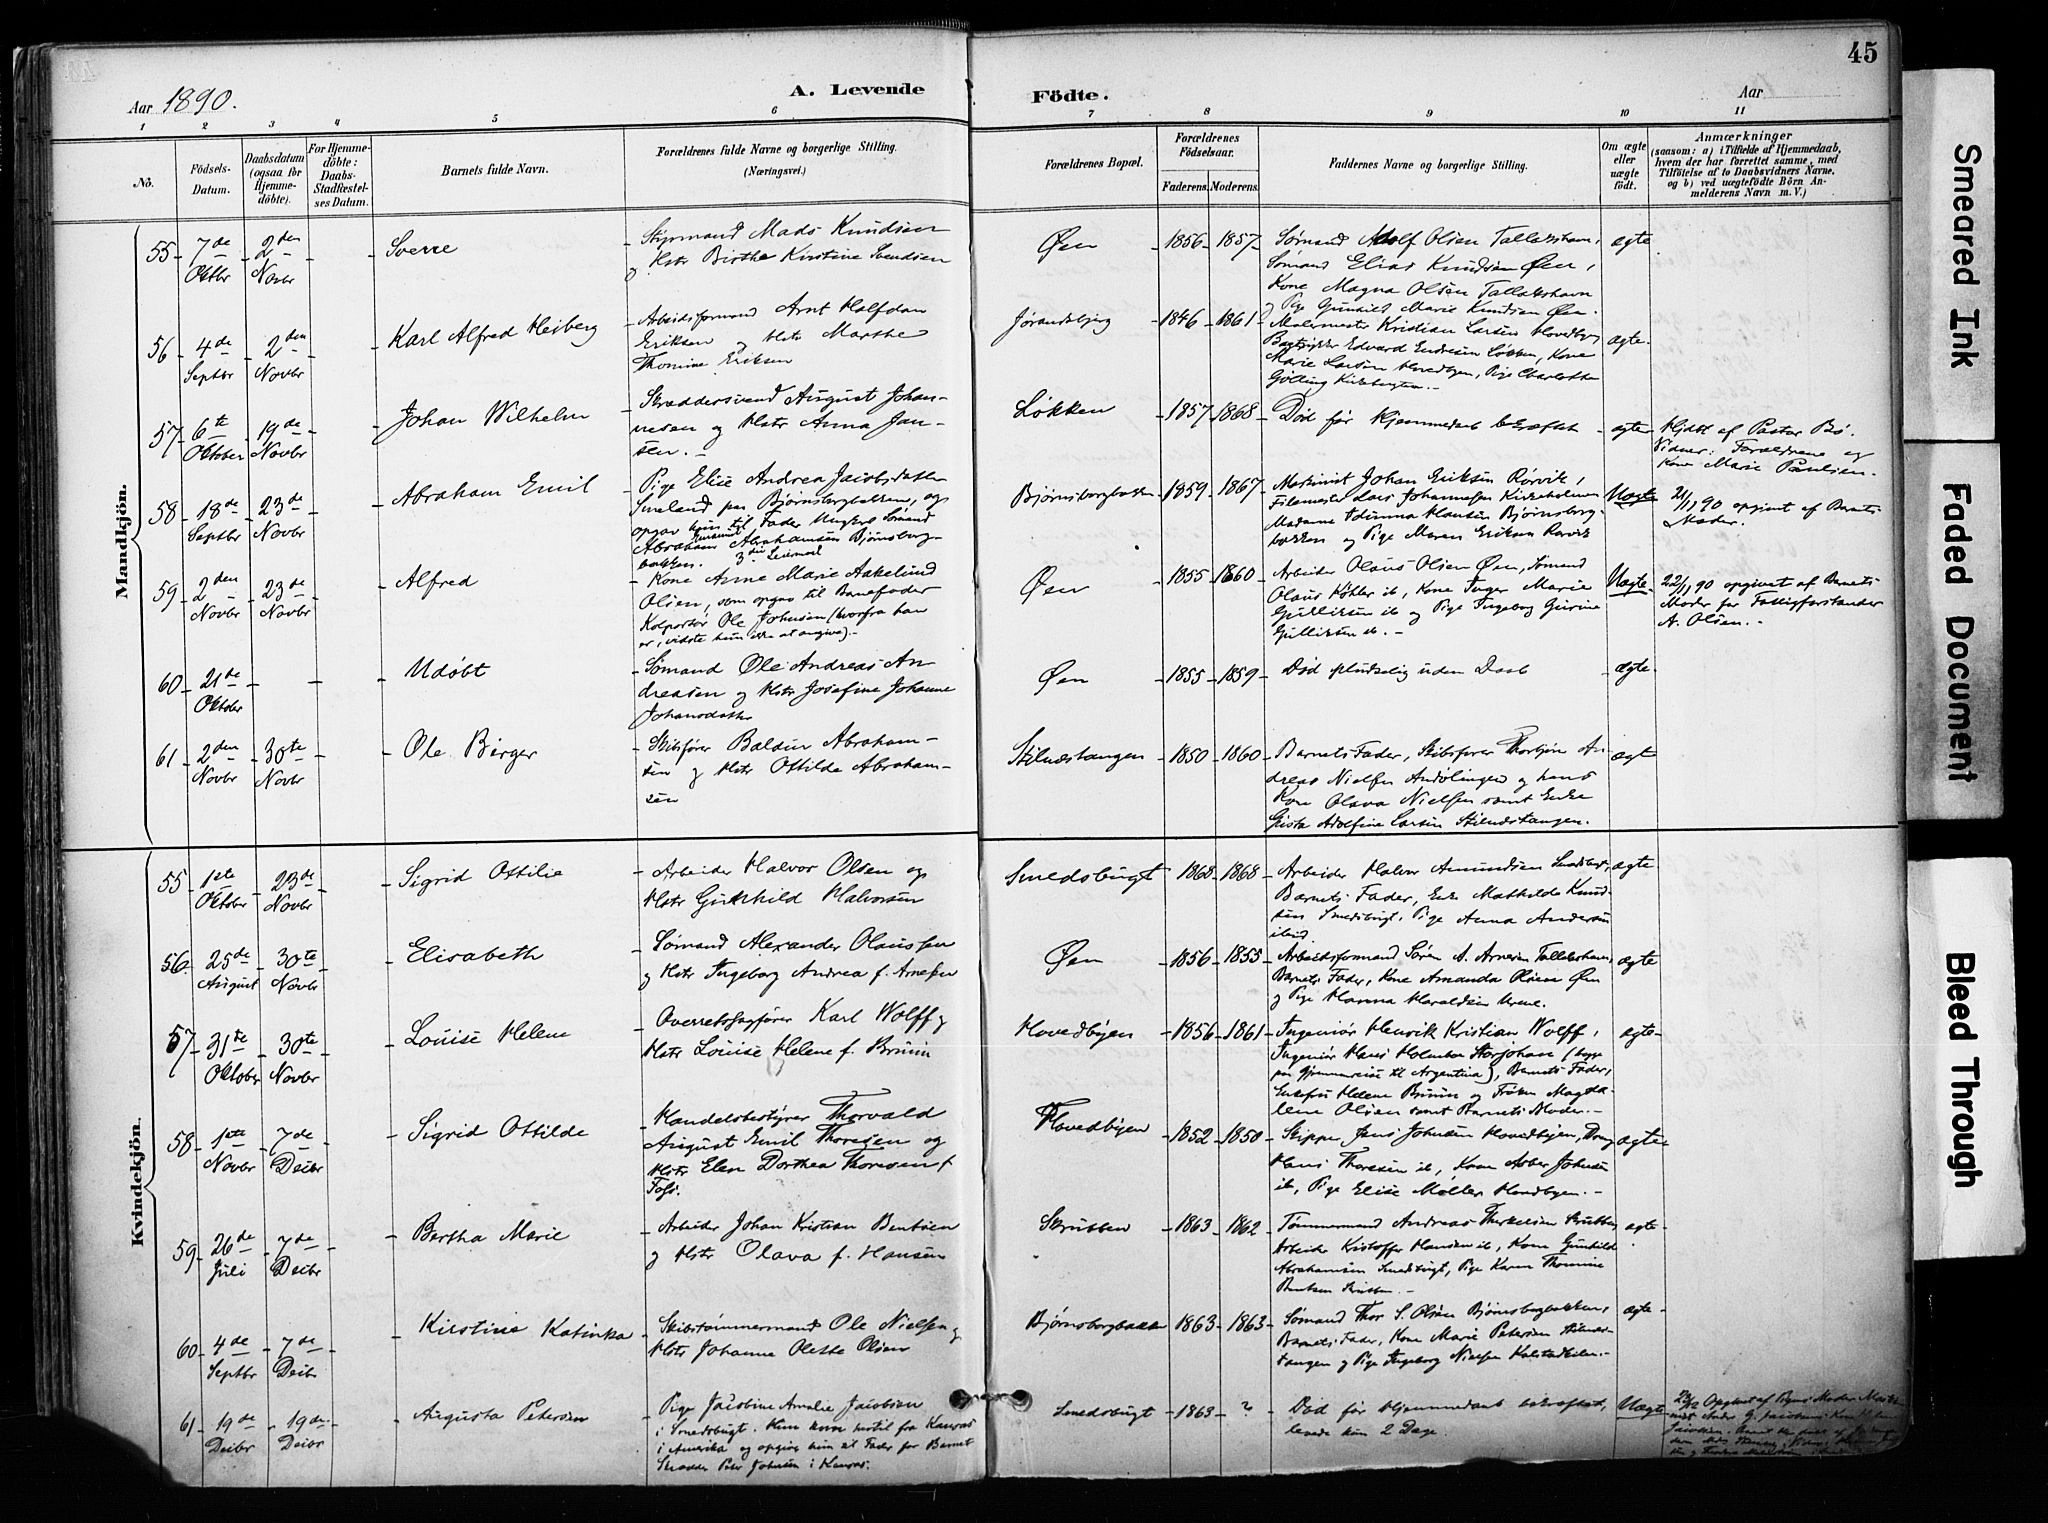 45
Aar 1890.
A. Levende
Födte.
Aar
1 2 3 4 5 6 7 8 9 10 11
No.
Födsels-Datum.
Daabsdatum (ogsaa for Hjemmedöbte).
For Hjemmedöbte: Daabs-Stadfæstelses Datum.
Barnets fulde Navn.
Forældrenes fulde Navne og borgerlige Stilling.
(Næringsvei.)
Forældrenes Bopæl.
Forældrenes Födselsaar.
Faderens. Moderens.
Faddernes Navne og borgerlige Stilling.
Om ægte eller uægte födt.
Anmærkninger
(saasom: a) i Tilfælde af Hjemmedaab, hvem der har forrettet samme, med Tilföielse af to Daabsvidners Navne, og b) ved uægtefödte Börn Anmelderens Navn m. V.)
Mandkjön.
55 7de Oktbr 2den Novbr Sverre
Styrmand Mads Knudsen
og Hstr Birthe Kirstine Svendsen
Øen 1856 1857
Sømand Adolf Olsen Tallakshavn,
Sømand Elias Knudsen Øen,
Kone Magna Olsen Tallakshavn
og Pige Gunhild Marie Knudsen Øen.
ægte
56 4de Septbr 2den Novbr Karl Alfred Heiberg
Arbeidsformand Arnt Halfdan
Eriksen og Hstr Marthe
Thomine Eriksen
1846 1861
Malermester Kristian Larsen Hovedbyen
Edvard Endresen Løkken, Kone
Marie Larsen Hovedbyen, Pige Charlotte
ægte
57 6te Oktober 19de Novbr Johan Wilhelm
Skræddersvend August Johan-
nesen og Hstr Anna Jan-
sen.
Løkken 1857 1868
Død før Hjemmedaab bekræftet
ægte
Hjdbt af Pastor Bö.
Vidner: Forældrene og
Kone Marie Paulsen.
58 18de Septbr 23de Novbr Abraham Emil
Pige Elise Andrea Jacobsdatter
Smeland paa Bjørnsborgbakken, og
opgav hun til Fader Ungkarl Sømand
Abraham Abrahamsen Bjørnsborg-
bakken. 3die Leiermaal
Bjørnsborgbakken 1859 1867
Maskinist Johan Eriksen Rørvik,
Filemester Lars Johannessen Kirkeholmen
Madame Hansen Bjørnsborg-
bakken og Pige Maren Eriksen Rørvik
Uægte
21/11 90 opgivet af Barnets
Moder.
59 2den Novbr 23de Novbr Alfred
Kone Anne Marie Aakelund
Olsen, som opgav til Barnefader
Kolportør Ole Johnsen (hvorfra han
er, vidste hun ikke at angive).
Øen 1855 1860
Arbeider Olaus Olsen Øen, Sømand
Olaus Køhler ib, Kone Inger Marie
Gulliksen ib og Pige Ingeborg Gurine
Gulliksen ib.
Uægte
22/11 90 opgivet af Barnets
Moder for Fattigforstander
A. Olsen.
60 21de Oktober Udøbt
Sømand Ole Andreas An
dreasen og Hstr Josefine Johanne
Johansdatter
Øen 1855 1859
Død pludselig uden Daab
ægte
61 2den Novbr 30te Novbr Ole Birger
Skibsfører Baldur Abraham-
sen og Hstr Ottilde Abraham-
sen
Stilnæstangen 1850 1860
Barnets Fader, Skibsfører Thorbjørn An
dreas Nielsen og hans
Kone Olava Nielsen samt Enke
Adolfine Larsen Stilnæstangen.
ægte
Kvindekjön.
55 1ste Oktober 23de Novbr Sigrid Ottilie
Arbeider Halvor Olsen og
Hstr Gunhild Halvorsen
Smedsbugt 1868 1868
Arbeider Halvor Amundsen Smedsbugt,
Barnets Fader, Enke Mathilde Knud-
sen Smedsbugt, Pige Anna Andersen
ibid
ægte
56 25de August 30te Novbr Elisabeth
Sømand Alexander Olaussen
og Hstr Ingeborg Andrea f. Arnesen
Øen 1856 1855
Arbeidsformand Sören A. Arnesen Tallakshavn,
Barnets Fader, Kone Amanda Olsen Øen
og Pige Hanna Haraldsen Urene.
ægte
57 31te Oktober 30te Novbr Louise Helene
Overretssagfører Karl Wolff og
Hstr Louise Helene f. Bruun
Hovedbyen 1856 1861
Ingeniør Henrik Kristian Wolff,
Ingeniør Hans Holmboe Storjohan (begge
paa Gjennemreise til Argentina), Barnets Fader,
Enkefru Helene Bruun og Frøken Magda-
lene Olsen samt Barnets Moder.
ægte
58 1ste Novbr 7de Decbr Sigrid Ottilde
Handelsbestyrer Thorvald
August Emil Thoresen og
Hstr Elen Dorthea Thoresen f.
Foss.
Hovedbyen 1852 1850
Skipper Jens Johnsen Hovedbyen, Dreng
Hans Thoresen ib, Kone Johnsen
ib, Pige Elise Møller Hovedbyen.
ægte
59 26de Juli 7de Decbr Bertha Marie
Arbeider Johan Kristian Bentsen
og Hstr Olava f. Hansen
Skrubben 1863 1862
Tømmermand Andreas Therkelsen Skrubben,
Arbeider Kristoffer Hansen ib, Kone Gunhild
Abrahamsen Smedsbugt, Pige Karen Thomine
Bentsen Skrubben.
ægte
60 4de Septbr 7de Decbr Kirstine Katinka
Skibstømmermand Ole Nielsen og
Hstr Johanne Olette Olsen
Bjørnsborgbakken 1863 1863
Sømand Thor S. Olsen Bjørnsborgbakken,
Barnets Fader, Kone Marie Petersen Stilnæs-
tangen og Pige Ingeborg Nielsen Kalstadkilen.
ægte
61 19de Decbr 19de Decbr Augusta Petersen
Pige Jacobine Amalie Jacobsen
i Smedsbugt. Hun kom hertil fra Kansas
i Amerika og opgiver hun til Fader for Barnet
Skrædder Peter Johnsen i Kansas.
Smedsbugt 1863 ?
Død før Hjemmedaab bekræftet,
levede kun 2 Dage.
Uægte
Smeared Ink
Faded Document
Bleed Through